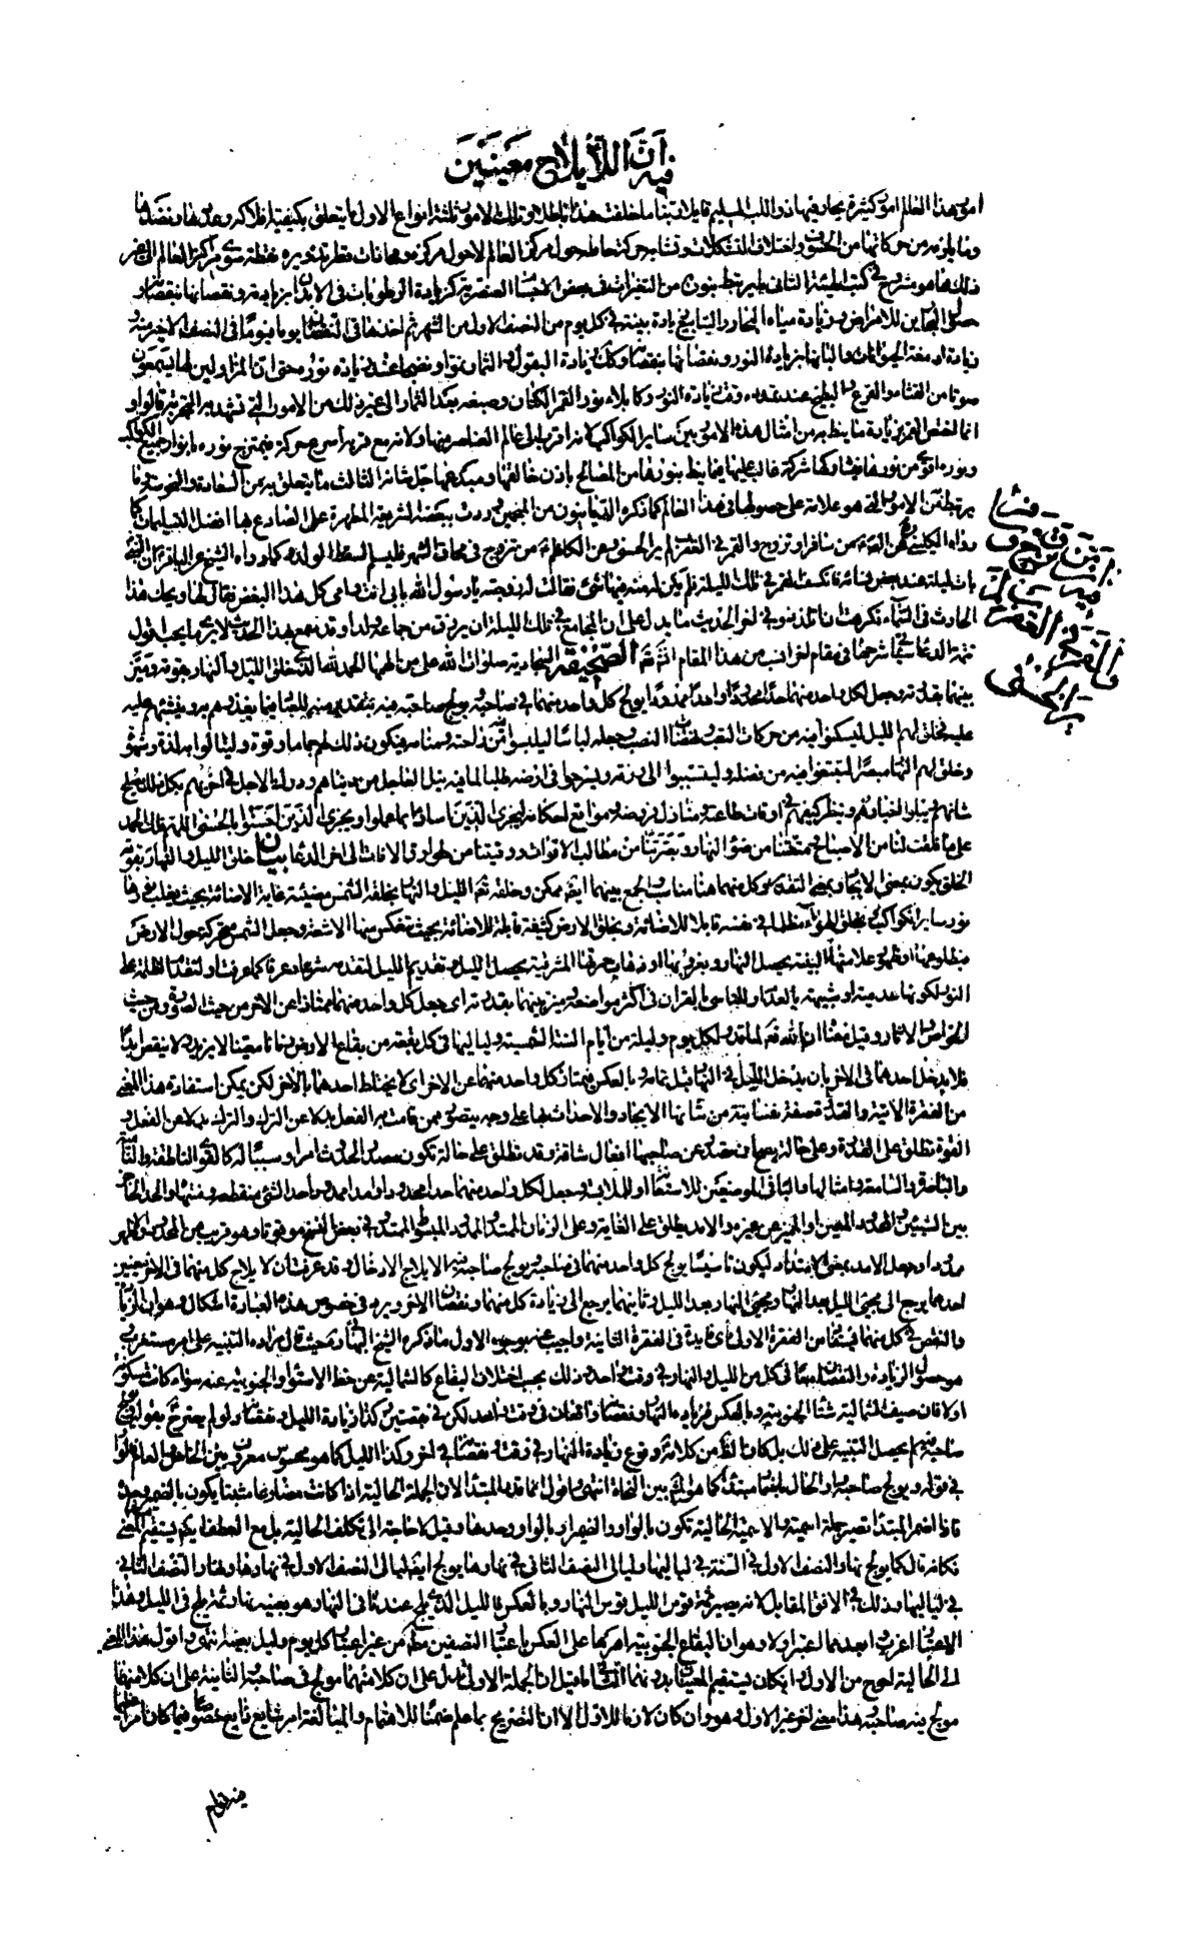 فيه ان للايلاج معنيين
امور هذا العالم امور كثيرة يحار فيها ذو اللب السليم قايلا ربنا ما خلقت هذا باطلا وتلك الامور ثلثة انواع الاول ما يتعلق بكيفية
وما يلزمه من حركاتها من الخسوف واختلاف التشكلات وتشابه حركة حامله حول مركز العالم لا حول مركزه ومحاذات قطر تدويره نقطة سوى مركز العالم الى غير
ذلك مما هو مشروح في كتب الهيئة الثاني ما يرتبط بنوره من التغيرات في بعض الاجسام العنصرية كزيادة الرطوبات في الابدان بزيادته ونقصانها بنقصانه و
حصول البحارين للامراض وزيادة مياه البحار والينابيع زيادة بينة في كل يوم من النصف الاول من الشهر ثم اخذها في النقصان يوما فيوما في النصف الاخير منه و
زيادة ادمغة الحيوانات والبانها بزيادة النور ونقصانها بنقصانه وكذلك زيادة البقول والثمار نموا ونضجا عند زيادة نوره حتى ان المزاولين لها يسمعون
صوتا من القثاء والقرع والبطيخ عند تمدده وقت زيادة النور وكابلاء نور القمر الكتان وصبغه بعض الثمار الى غير ذلك من الامور التي تشهد بها التجربة قالوا و
انما اختص القمر بزيادة ما ينط به من امثال هذه الامور بين ساير الكواكب لانه اقرب الى عالم العناصر منها ولانه مع قربه اسرع حركة فيمتزج نوره بانوار جميع الكواكب
ونوره اقوى من نورها فيشاركها شركة غالب عليها فيما ينط بنورها من المصالح باذن خالقها ومبدعها جل شانه الثالث ما يتعلق به من السعادة والنحوسة وما
يرتبط به من الامور التي هو علامة على حصولها في هذا العالم كما ذكره الديانيون من المنجمين ووردت ببعضه الشريعة المطهرة على الصادع بها افضل التسليمات كما
رواه الكليني عن الصادق من سافر او تزوج والقمر في العقرب لم ير الحسنى وعن الكاظم من تزوج في محاق الشهر فليسلم لسقط الولد وكما رواه الشيخ عن الباقر ان النبي
بات ليلة عند بعض نسائه فانكسف القمر في تلك الليلة فلم يكن منه فيها شيء فقالت له زوجته يا رسول الله بابي انت وامي كل هذا البغض فقال لها ويحك هذا
الحادث في السماء فكرهت ان اتلذذ وفي اخر الحديث ما يدل على ان المجامع في تلك الليلة ان يرزق من جماعه ولدا وقد سمع هذا الحديث لا يرى ما يحب اقول
تتمة الدعاء سيجيء شرحها في مقام اخر انسب من هذا المقام انشاء الله الصحيفة السجادية صلوات الله على من الهمها الحمد لله الذي خلق الليل والنهار بقوته وميز
بينهما بقدرته وجعل لكل واحد منهما حدا محدودا وامدا ممدودا يولج كل واحد منهما في صاحبه ويولج صاحبه فيه بتقدير منه للعباد فيما يغذوهم به وينشئهم عليه
فخلق لهم الليل ليسكنوا فيه من حركات التعب ونهضات النصب وجعله لباسا ليلبسوا من راحته ومنامه فيكون ذلك لهم جماما وقوة ولينالوا به لذة وشهوة
وخلق لهم النهار مبصرا ليبتغوا فيه من فضله وليتسببوا الى رزقه ويسرحوا في ارضه طلبا لما فيه نيل العاجل من دنياهم ودرك الاجل في اخريهم بكل ذلك يصلح
شانهم ويبلو اخبارهم وينظر كيف هم في اوقات طاعته ومنازل فروضه ومواقع احكامه ليجزي الذين اساؤا بما عملوا ويجزي الذين احسنوا بالحسنى اللهم فلك الحمد
على ما فلقت لنا من الاصباح ومتعتنا من ضوء النهار وبصرتنا من مطالب الاقوات ووقيتنا من طوارق الافات الى اخر الدعا بيان خلق الليل والنهار بقوته
الخلق يكون بمعنى الايجاد وبمعنى التقدير وكل منهما هنا مناسب والجمع بينهما ايضا ممكن وخلقه تعالى الليل والنهار بخلقه الشمس مضيئة غاية الاضائة بحيث يغلب ضوءها
نور ساير الكواكب وبخلق الهواء مظلما في نفسه قابلا للاضائة وبخلق الارض كثيفة قابلة للاضائة بحيث تنعكس منها الاشعة وجعل الشمس متحركة حول الارض
فبطلوعها او ظهور علامتها البينة يحصل النهار وبغروبها او ذهاب حمرتها المشرقية يحصل الليل وتقديم الليل لتقدمه شرعا وعرفا كما عرفت او لتقدم الظلمة على
النور لكونها عدمية او شبيهة بالعدم وللتاسي بالقران في اكثر مواضعه وميز بينهما بقدرته اي جعل كل واحد منهما ممتازا عن الاخر من حيث الصورة ومن حيث
الخواص والاثار وقيل معناه ان الله تعالى لما قدر لكل يوم وليلة من ايام السنة الشمسية ولياليها في كل بقعة من بقاع الارض زمانا معينا لا يزيد ولا ينقص ابدا
فلا يدخل احدهما في الاخر بان يدخل الليل في النهار قبل تمامه وبالعكس فيمتاز كل واحد منهما عن الاخر اي لا يختلط احدهما بالاخر لكن يمكن استفادة هذا المعنى
من الفقرة الاتية والقدرة صفة نفسانية من شانها الايجاد والاحداث بها على وجه يتصور ممن قامت به الفعل بدلا عن الترك والترك بدلا عن الفعل و
القوة تطلق على القدرة وعلى حالة يصح ان يصدر عن صاحبها افعال شاقة وقد تطلق على حالة تكون مصدر الحدوث امر او سببا له كالقوة الناطقة والنامية
والباصرة والسامعة وامثالها والباء في الموضعين للاستعانة او للملابسة وجعل لكل واحد منهما حدا محدودا وامدا ممدودا حد الشيء منقطعه ومنتهاه والحد الحاجز
بين الشيئين والمحدود المعين او المميز عن غيره والامد يطلق على الغاية وعلى الزمان الممتد والممدود المبسوط الممتد وفي بعض النسخ موقوتا وهو قريب من المحدود كالمر
ممدودا وجعل الامد بمعنى الامتداد ليكون تاسيسا يولج كل واحد منهما في صاحبه ويولج صاحبه فيه الايلاج الادخال وقد عرفت ان لايلاج كل منهما في الاخر معنيين
احدهما يرجع الى مجيء الليل بعد النهار ومجيء النهار بعد الليل وثانيهما يرجع الى زيادة كل منهما ونقصان الاخر ويرد في خصوص هذه العبارة اشكال وهو ان الزيادة
والنقص في كل منهما فهم من الفقرة الاولى فاي فايدة في الفقرة الثانية واجيب عنه بوجوه الاول ما ذكره الشيخ البهائي ره حيث قال مراده التنبيه على امر مستغرب
هو حصول الزيادة والنقصان معا في كل من الليل والنهار في وقت واحد وذلك بحسب اختلاف البقاع كالشمالية عن خط الاستواء والجنوبية عنه سواء كانت مسكونة
او لا فان صيف الشمالية شتاء الجنوبية وبالعكس فزيادة النهار ونقصانه واقعان في وقت واحد لكن في بقعتين وكذا زيادة الليل ونقصانه ولو لم يصرح بقوله ويولج
صاحبه فيه لم يحصل التنبيه على ذلك بل كان الظاهر من كلامه وقوع زيادة النهار في وقت ونقصانه في اخر وكذا الليل كما هو محسوس معروف بين الخاص والعام فالواو
في قوله ويولج صاحبه واو الحال باضمار مبتدأ كما هو المشهور بين النحاة انتهى واقول انما قدر المبتدأ لان الجملة الحالية اذا كانت مضارعا مثبتا يكون بالضمير وحده
فاذا اضمر المبتدأ تصير جملة اسمية والاسمية الحالية تكون بالواو والضمير او بالواو وحدها وقيل لا حاجة الى تكلف الحالية بل مع العطف ايضا يستقيم المعنى
فكانه قال كما يولج نهار النصف الاول في السنة في لياليها وليالي النصف الثاني في نهارها يولج ايضا ليالي النصف الاول في نهارها ونهار النصف الثاني
في لياليها وذلك في الافق المقابل لانه يصير ثمة قوس الليل قوس النهار وبالعكس فالليل الذي يلج عندنا في النهار هو بعينه نهار ثمة يلج في الليل وهذا
الاعتبار اغرب مما اعتبر اولا وهو ان البقاع الجنوبية امرها على العكس باعتبار النصفين مطلقا من غير اعتبار كل يوم وليل بعينه انتهى واقول هذا المعنى
الحالية اوضح من الاول وان كان يستقيم المعنى بدونها الثاني ما قيل ان الجملة الاولى تدل على ان كلا منهما مولج في صاحبه والثانية على ان كلا منهما
مولج فيه صاحبه وهذا معنى اخر غير الاول وهو وان كان لازما للاول الا ان التصريح بما علم ضمنا للاهتمام والمبالغة امر شايع ذايع خصوصا فيما كان امرا